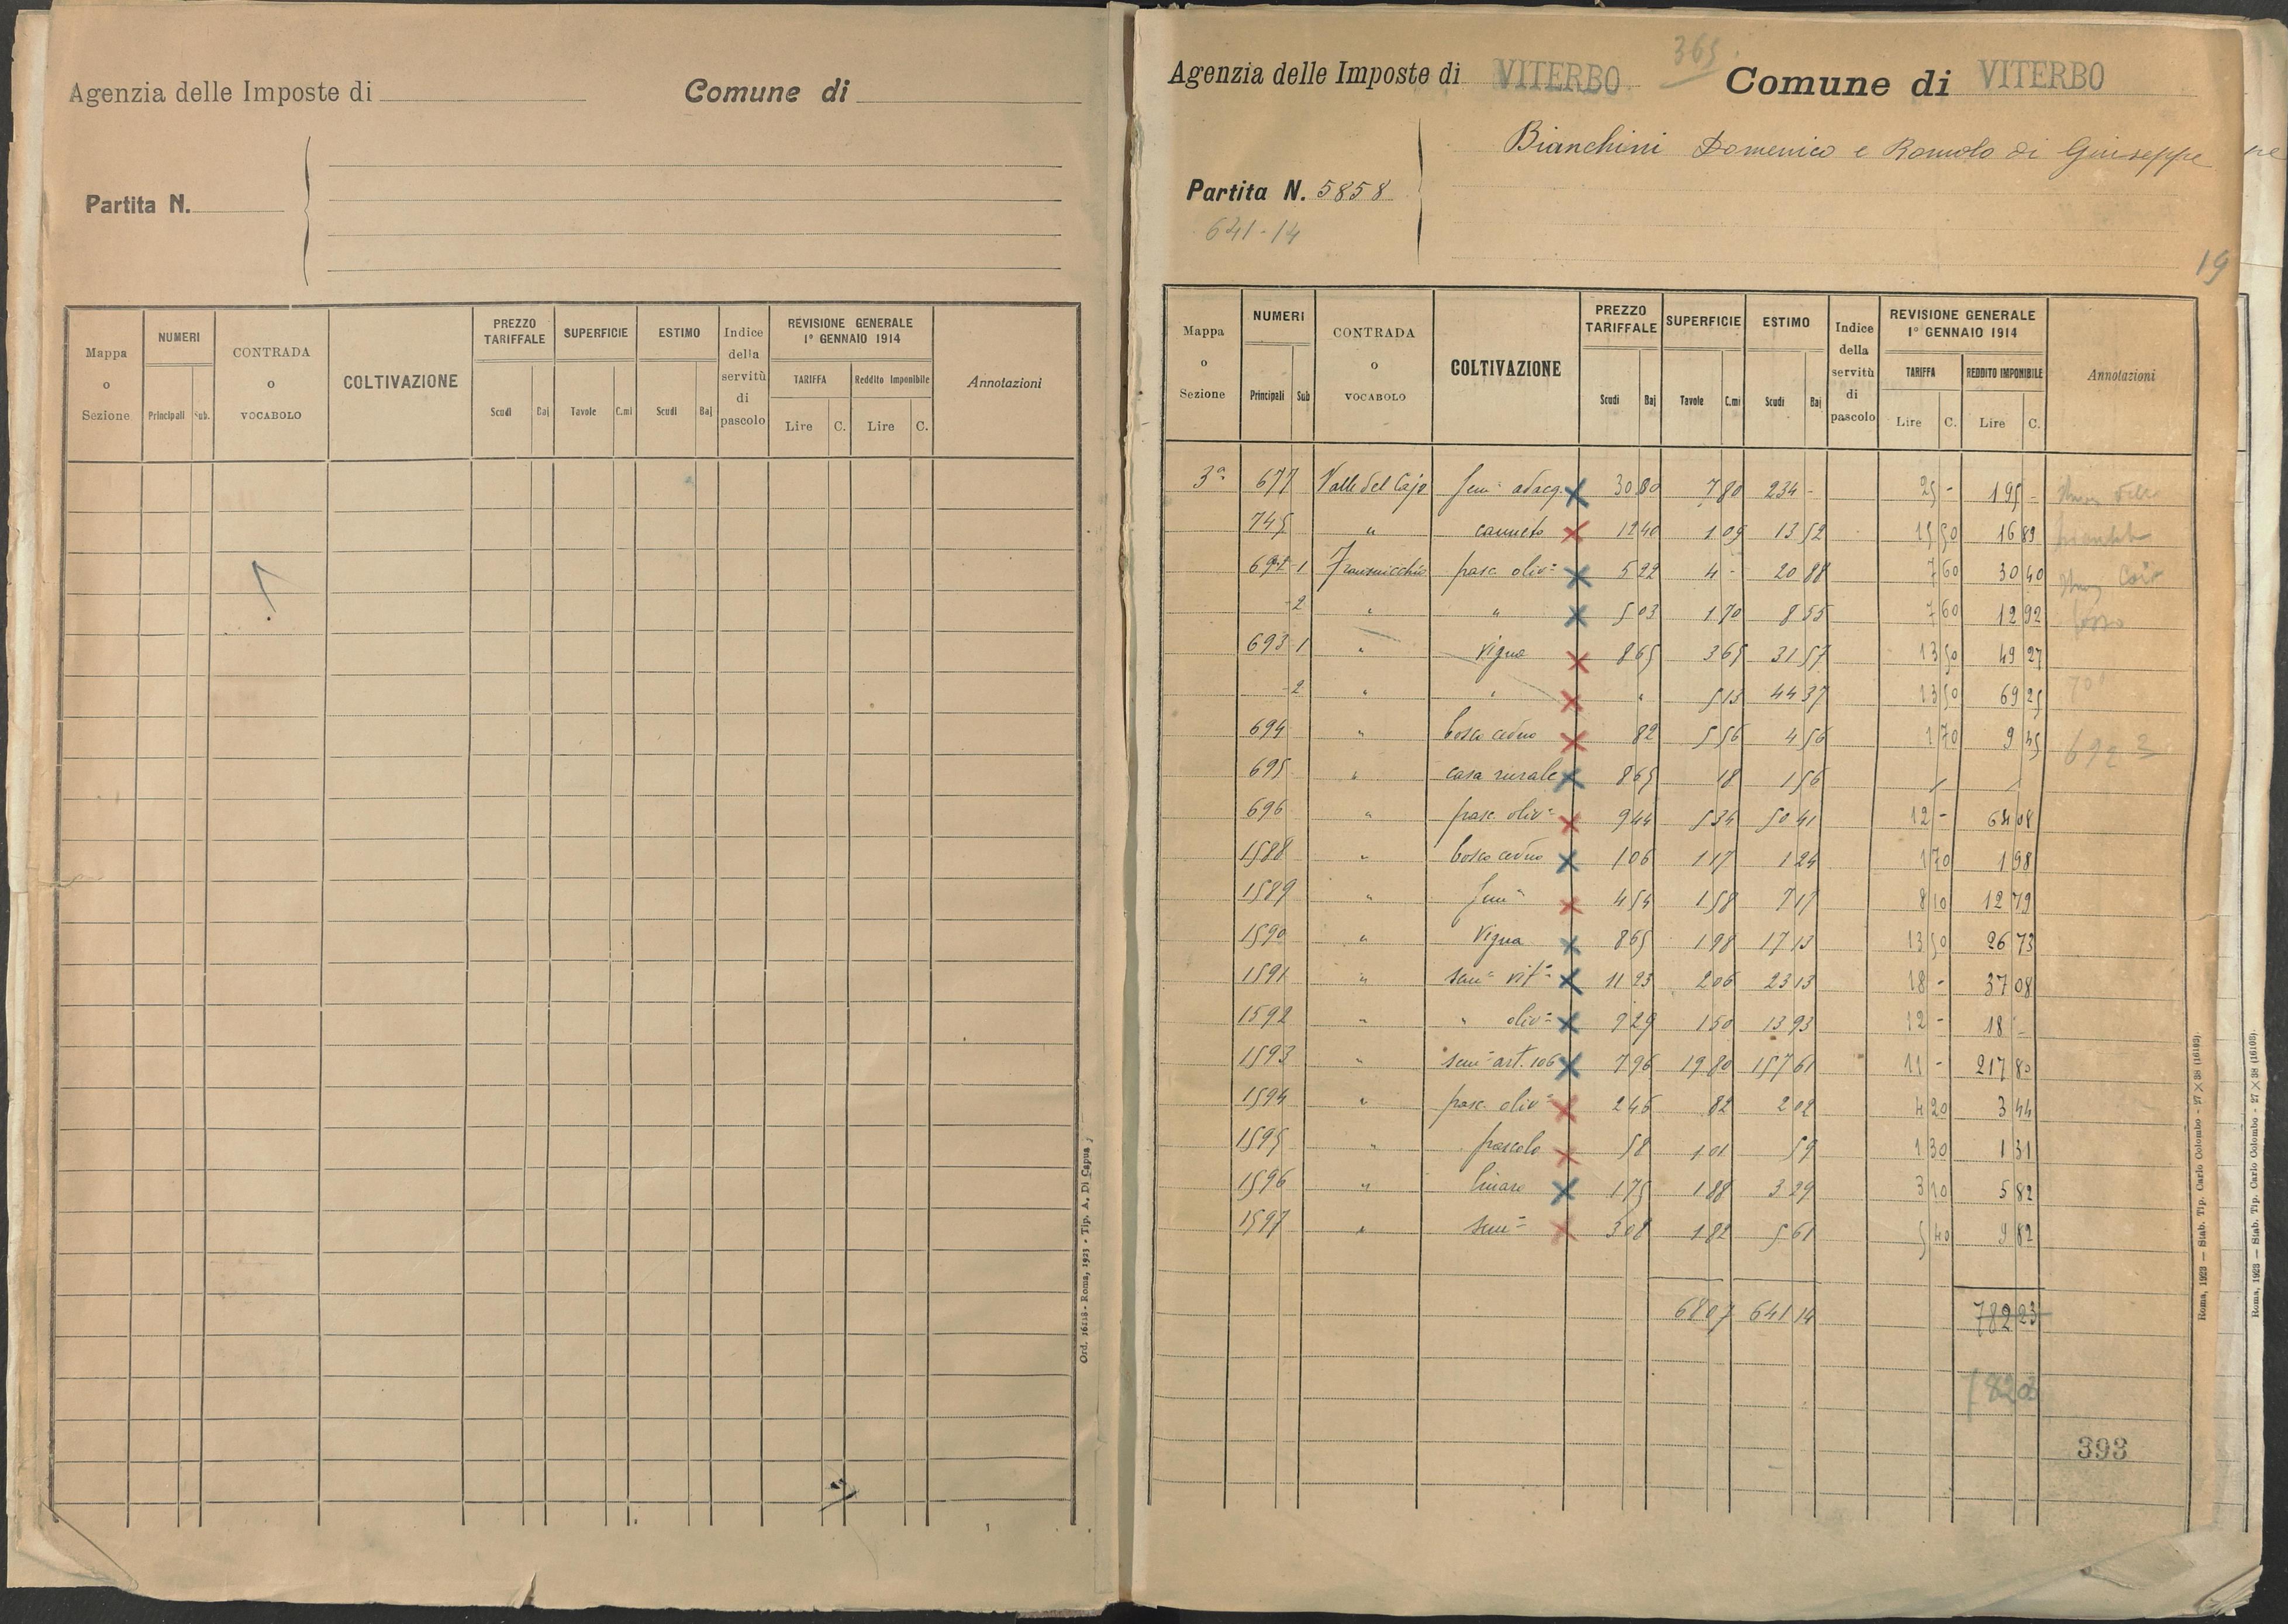 Agenzia delle Imposte di
Comune di
Partita N.
Mappa o Sezione
NUMERI
Principali
Sub.
CONTRADA o VOCABOLO
COLTIVAZIONE
PREZZO TARIFFALE
Scudi
Baj
SUPERFICIE
Tavole
C.mi
ESTIMO
Scudi
Baj
Indice della servitù di pascolo
REVISIONE GENERALE
1° GENNAIO 1914
TARIFFA
Lire
C.
Reddito Imponibile
Lire
C.
Annotazioni
Ord. 16118 - Roma, 1923 - Tip. A. Di Capua
365
Agenzia delle Imposte di VITERBO Comune di VITERBO
Bianchini Domenico e Romolo di Giuseppe
Partita N. 5858
641-14
19
Mappa o Sezione
NUMERI
Principali
Sub
CONTRADA o VOCABOLO
COLTIVAZIONE
PREZZO TARIFFALE
Scudi
Baj
SUPERFICIE
Tavole
C.mi
ESTIMO
Scudi
Baj
Indice della servitù di pascolo
REVISIONE GENERALE
1° GENNAIO 1914
TARIFFA
Lire
C.
REDDITO IMPONIBILE
Lire
C.
Annotazioni
3ª 677 Valle del Cajo Sem° adacq. 30 00 7 80 234 - 25 - 195 -
745 " canneto 12 40 1 09 13 52 15 50 16 89
692 1 pasc. oliv° 5 22 4 - 20 88 7 60 30 40
2 " " 5 03 1 70 8 55 7 60 12 92
693 1 " vigna 8 65 3 65 31 57 13 50 49 27
2 " " " 5 13 44 37 13 50 69 25
694 " bosco ceduo 82 5 56 4 56 1 70 9 45
692 2
695 " casa rurale 8 65 18 1 56 / /
696 " pasc. oliv° 9 44 5 34 50 41 12 - 64 08
1588 " bosco ceduo 1 06 1 17 1 24 1 70 1 98
1589 " Sem° 4 54 1 58 7 17 8 10 12 79
1590 " Vigna 8 65 1 98 17 13 13 50 26 73
1591 " sem° vit° 11 23 2 06 23 13 18 - 37 08
1592 " " oliv° 9 29 1 50 13 93 12 - 18 -
1593 " sem° art. 106 7 96 19 80 157 61 11 - 217 80
1594 " pasc. oliv° 2 46 82 2 02 4 20 3 44
1595 " pascolo 58 1 01 59 1 30 1 31
1596 " 1 75 1 88 3 29 3 10 5 82
1597 " sem° 3 08 1 82 5 61 5 40 9 82
68 07 641 14 782 23
782 03
393
Roma, 1923 — Stab. Tip. Carlo Colombo - 27 × 38 (16103).
Roma, 1923 — Stab. Tip. Carlo Colombo - 27 × 38 (16103).